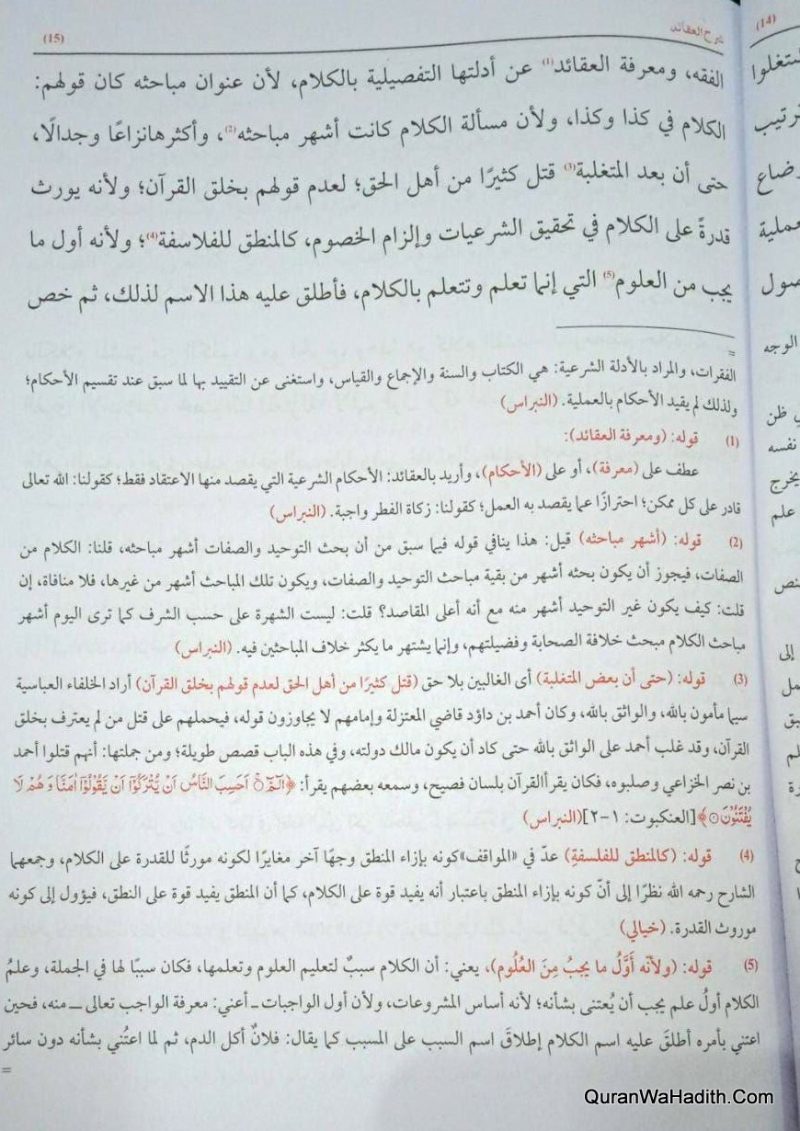 (15)
شرح العقائد
(14)
الفقه، ومعرفة العقائد(1) عن أدلتها التفصيلية بالكلام، لأن عنوان مباحثه كان قولهم:
الكلام في كذا وكذا، ولأن مسألة الكلام كانت أشهر مباحثه(2)، وأكثرهانزاعًا وجدالًا،
حتى أن بعد المتغلبة(3) قتل كثيرًا من أهل الحق؛ لعدم قولهم بخلق القرآن؛ ولأنه يورث
قدرةً على الكلام في تحقيق الشرعيات وإلزام الخصوم، كالمنطق للفلاسفة(4)؛ ولأنه أول ما
يجب من العلوم(5) التي إنما تعلم وتتعلم بالكلام، فأطلق عليه هذا الاسم لذلك، ثم خص
=
الفقرات، والمراد بالأدلة الشرعية: هي الكتاب والسنة والإجماع والقياس، واستغنى عن التقييد بها لما سبق عند تقسيم الأحكام؛
ولذلك لم يقيد الأحكام بالعملية. (النبراس)
(1) قوله: (ومعرفة العقائد):
عطف على (معرفة)، أو على (الأحكام)، وأريد بالعقائد: الأحكام الشرعية التي يقصد منها الاعتقاد فقط؛ كقولنا: الله تعالى
قادر على كل ممكن؛ احترازًا عما يقصد به العمل؛ كقولنا: زكاة الفطر واجبة. (النبراس)
(2) قوله: (أشهر مباحثه) قيل: هذا ينافي قوله فيما سبق من أن بحث التوحيد والصفات أشهر مباحثه، قلنا: الكلام من
الصفات، فيجوز أن يكون بحثه أشهر من بقية مباحث التوحيد والصفات، ويكون تلك المباحث أشهر من غيرها، فلا منافاة، إن
قلت: كيف يكون غير التوحيد أشهر منه مع أنه أعلى المقاصد؟ قلت: ليست الشهرة على حسب الشرف كما ترى اليوم أشهر
مباحث الكلام مبحث خلافة الصحابة وفضيلتهم، وإنما يشتهر ما يكثر خلاف المباحثين فيه. (النبراس)
(3) قوله: (حتى أن بعض المتغلبة) أى الغالبين بلا حق (قتل كثيرًا من أهل الحق لعدم قولهم بخلق القرآن) أراد الخلفاء العباسية
سيما مأمون بالله، والواثق بالله، وكان أحمد بن داؤد قاضي المعتزلة وإمامهم لا يجاوزون قوله، فيحملهم على قتل من لم يعترف بخلق
القرآن، وقد غلب أحمد على الواثق بالله حتى كاد أن يكون مالك دولته، وفي هذه الباب قصص طويلة؛ ومن جملتها: أنهم قتلوا أحمد
بن نصر الخزاعي وصلبوه، فكان يقرأالقرآن بلسان فصيح، وسمعه بعضهم يقرأ: ﴿الٓمّٓ ۝ اَحَسِبَ النَّاسُ اَنْ يُّتْرَكُوْٓا اَنْ يَّقُوْلُوْٓا اٰمَنَّا وَهُمْ لَا
يُفْتَنُوْنَ ۝﴾ [العنكبوت: ١-٢](النبراس)
(4) قوله: (كالمنطق للفلسفةِ) عدّ في «المواقف»كونه بإزاء المنطق وجهًا آخر مغايرًا لكونه مورثًا للقدرة على الكلام، وجمعهما
الشارح رحمه الله نظرًا إلى أنّ كونه بإزاء المنطق باعتبار أنه يفيد قوة على الكلام، كما أن المنطق يفيد قوة على النطق، فيؤول إلى كونه
موروث القدرة. (خيالي)
(5) قوله: (ولأنّه أوّلُ ما يجبُ مِنَ العُلُوم)، يعني: أن الكلام سببٌ لتعليم العلوم وتعلمها، فكان سببًا لها في الجملة، وعلمُ
الكلام أولُ علم يجب أن يُعتنى بشأنه؛ لأنه أساس المشروعات، ولأن أول الواجبات ـ أعني: معرفة الواجب تعالى ـ منه، فحين
اعتني بأمره أطلقَ عليه اسم الكلام إطلاقَ اسم السبب على المسبب كما يقال: فلانٌ أكل الدم، ثم لما اعتُني بشأنه دون سائر
=
QuranWaHadith.Com